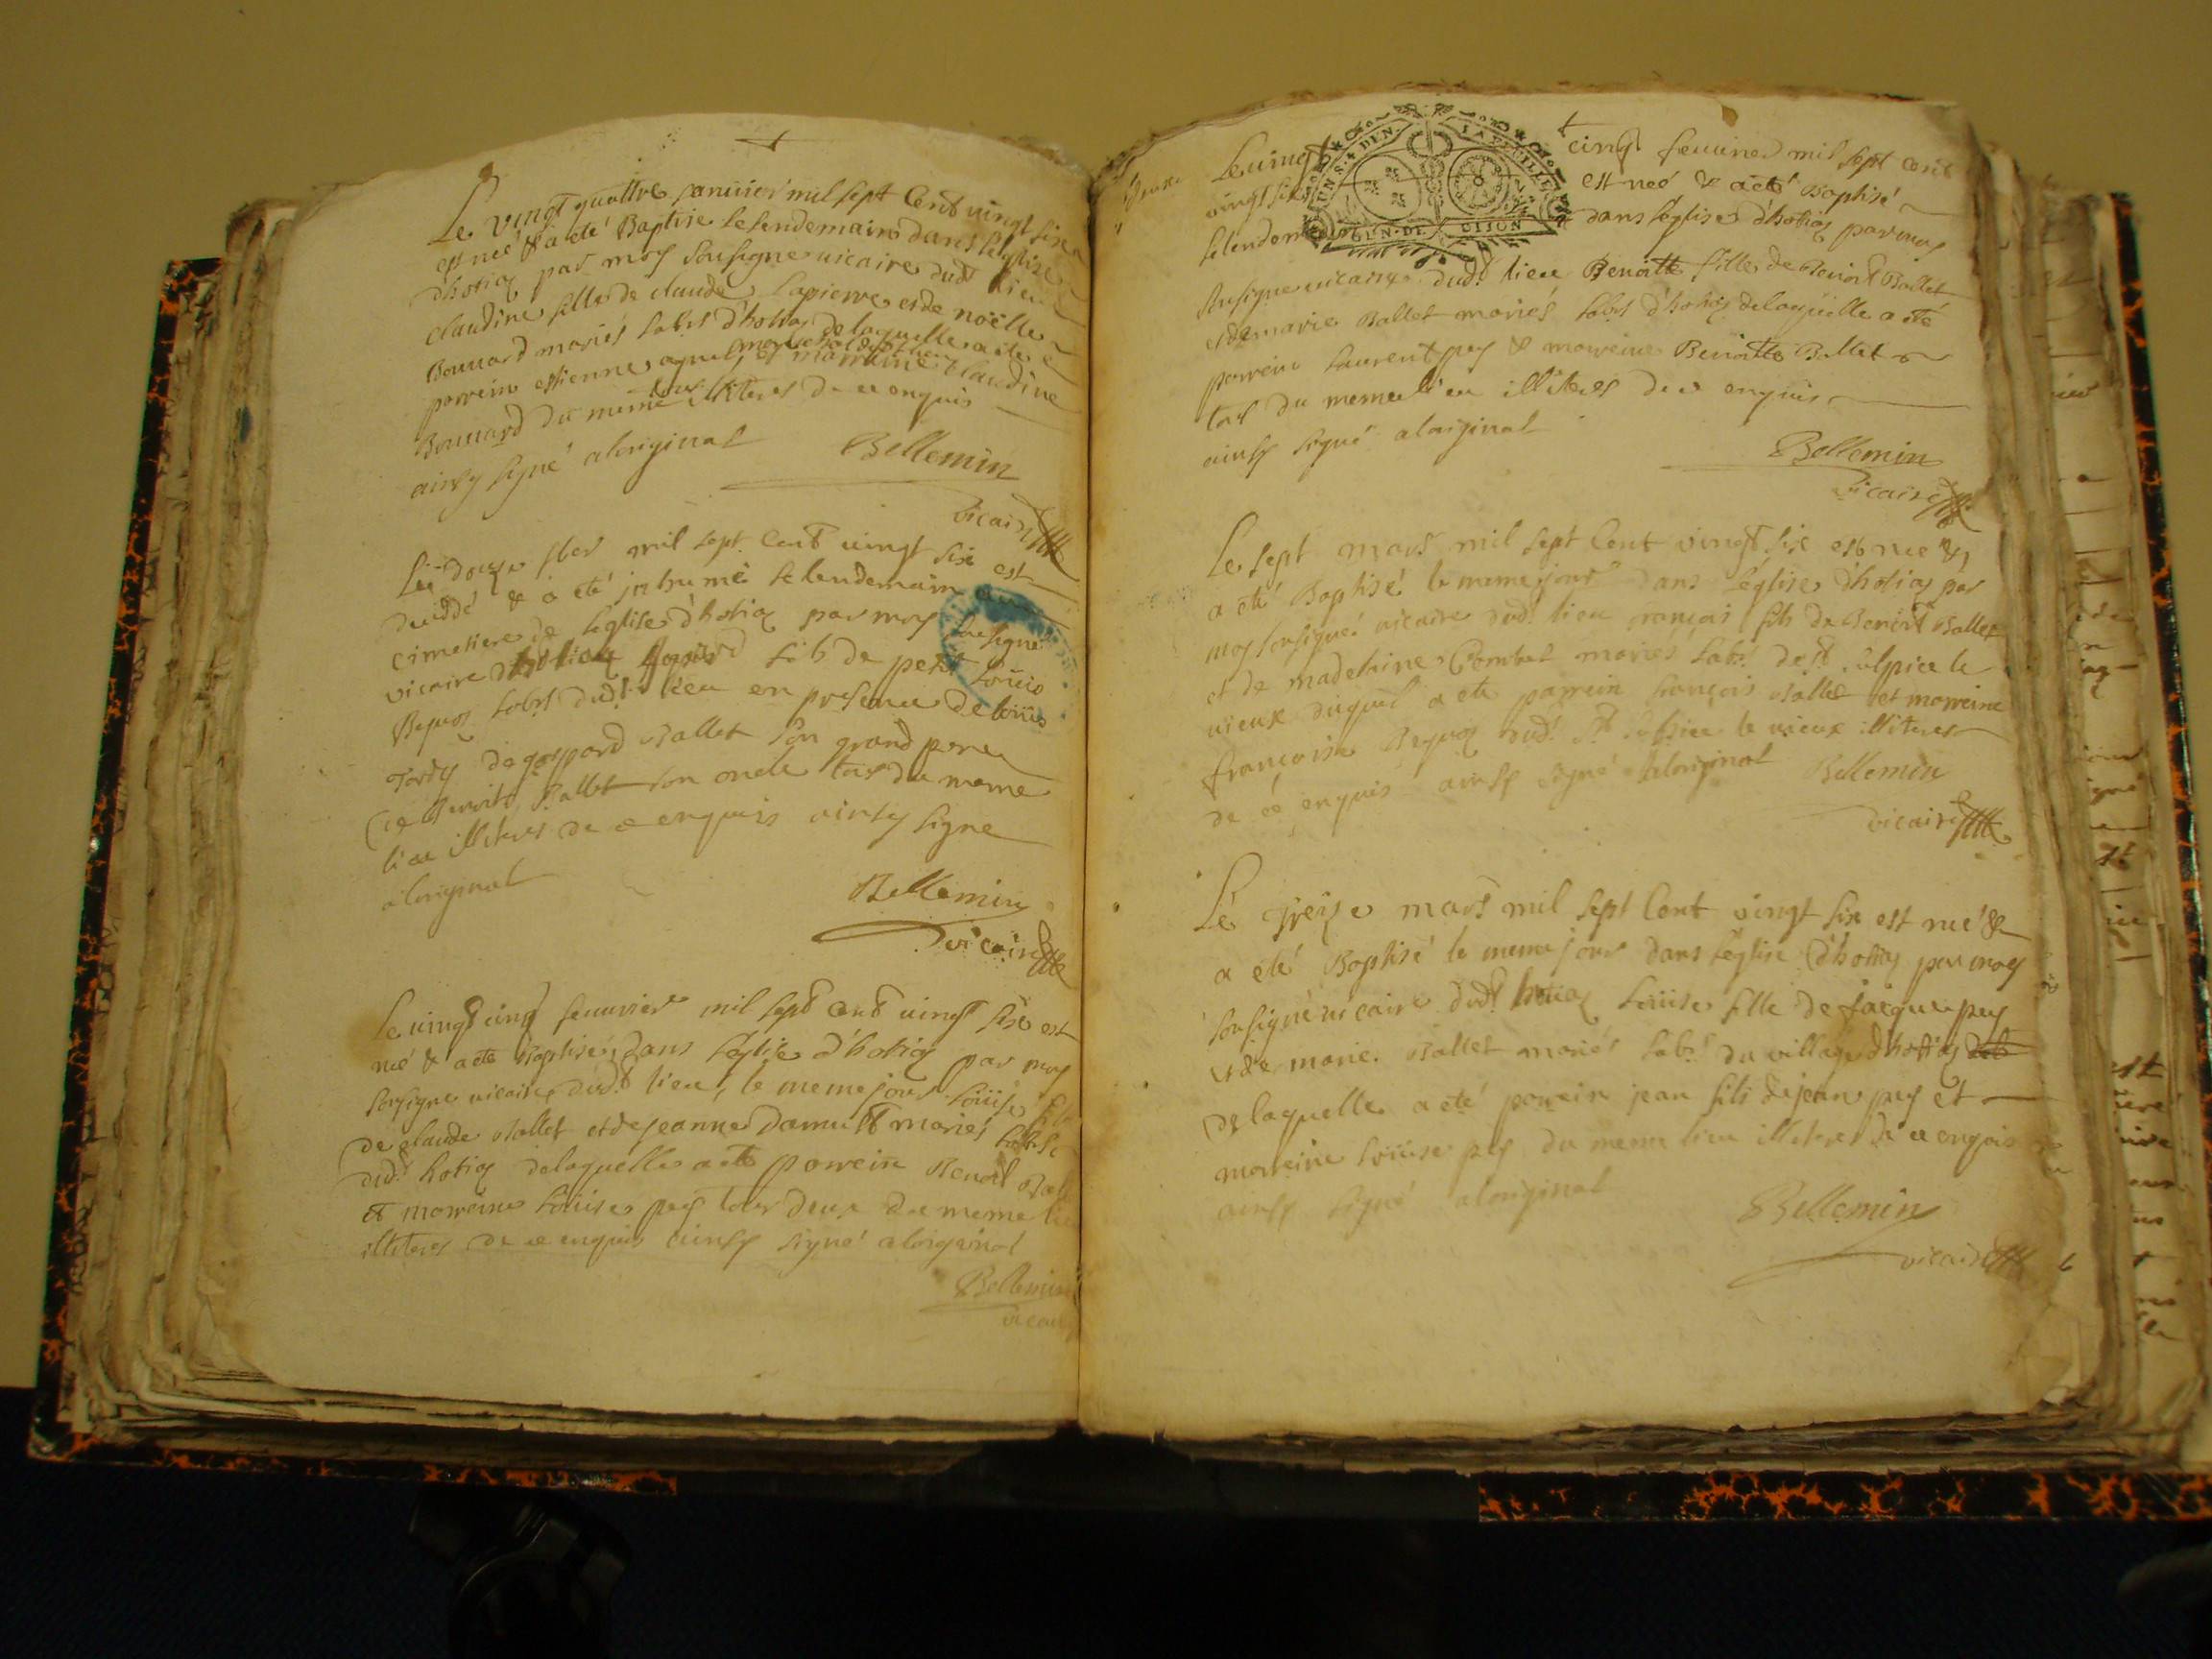 Le vingt quattre januier mil sept Cent uingt six
est neé & a eté Baptise le lendemain dans leglise
d'hotiaz par moy sousigne uicaire dudt lieu
claudine fille de claude Lapierre et de noëlle
Bouuard mariés labrs d'hotiaz de laquelle a ete
parrein estienne et marraine claudine
Bouuard du meme illiteres de ce enquis
ainsy signé a loriginal Bellemin
vicaire
Le douse mil sept Cent uingt six est
decedé & a eté jnhumé le lendemain au
cimetiere de leglise d'hotiaz par moy sousigné
vicaire fils de petit Loüis
labrs dudt lieu en presence de loüis
de gaspard Ballet son grand pere
et Benoite Ballet son oncle tous du meme
lieu illiteres de ce enquis ainsy signe
a loriginal
Bellemin
vicaire
Le uingt cinq feuurier mil sept Cent uingt six est
neé & a ete Baptisé dans leglise d'hotiaz par moy
sousigne uicaire dudt lieu, le meme jour Loüise fille
de claude Ballet et de jeanne mariés labrs
dudt hotiaz de laquelle a ete parrein Benoit
et marreine Loüise pey tous deux du meme lieu
illiteres de ce enquis ainsy signé a loriginal
Bellemin
vicaire
Le uingt cinq feuurier mil sept cent
uingt six est neé & a eté Baptisé
le lendemain dans leglise d'hotiaz par moy
sousigne uicaire dudt lieu Benoitte fille de Benoit Ballet
et de marie Ballet mariés labrs d'hotiaz de laquelle a eté
parrein Laurent pey & marreine Benoitte Ballet
tous du meme lieu illiteres de ce enquis
ainsy signé a loriginal
Bellemin
vicaire
Le sept mars mil sept Cent vingt six est nee &
a eté Baptisé le meme jour dans leglise d'hotiaz par
moy sousigné uicaire dudt lieu françois fils de Benoit Ballet
et de madelaine Combet mariés labrs de St Sulpice le
uieux duquel a ete parrein françois Ballet et marreine
françoise dudt St Sulpice le uieux illiteres
de ce enquis ainsy signé a loriginal Bellemin
vicaire
Le treize mars mil sept Cent vingt six est neé &
a eté Baptisé le meme jour dans leglise d'hotiaz par moy
sousigné uicaire dudt hotiaz Loüise fille de jacque pey
et de marie Ballet mariés labrs du village d'hotiaz
de laquelle a eté parrein jean fils de jean pey et
marreine Loüise pey du meme lieu illiteres de ce enquis
ainsy signé a loriginal
Bellemin
vicaire